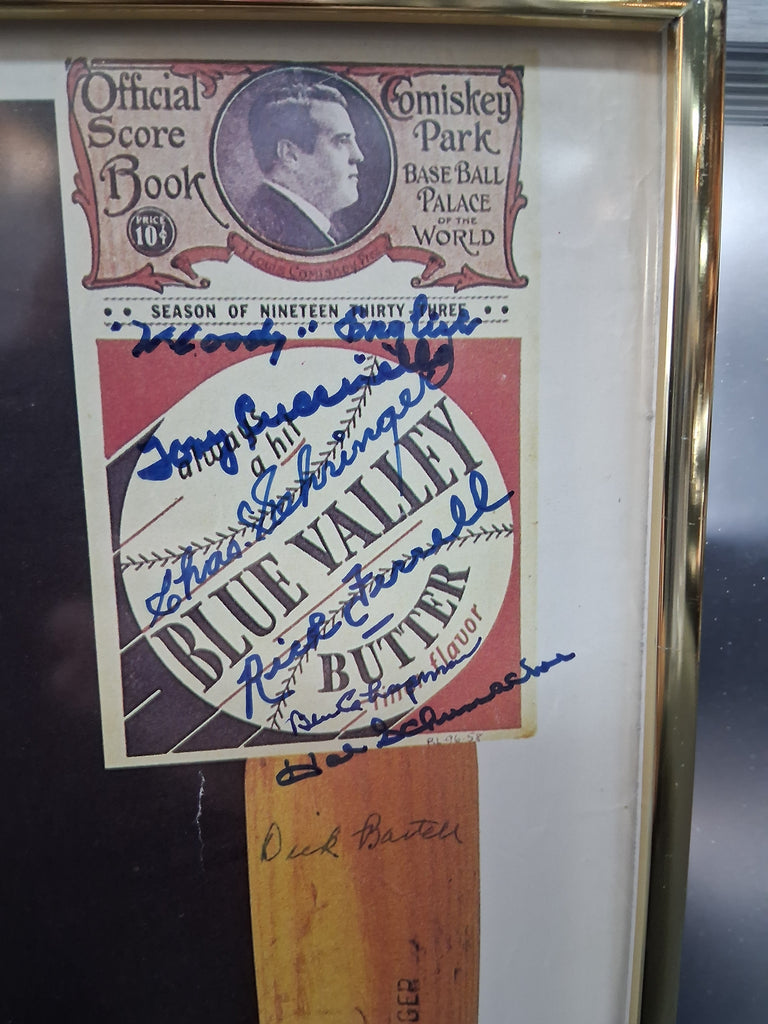 Official
Score
Book
PRICE
10¢
Comiskey
Park
BASE BALL
PALACE
OF THE
WORLD
J. Louis Comiskey, Pres.
SEASON OF NINETEEN THIRTY THREE
"Woody" English
Tony Cuccinello
always
a hit
Chas. Gehringer
BLUE VALLEY
Rick Ferrell
BUTTER
flavor
Ben Chapman
Hal Schumacher
PL-96-58
Dick Bartell
GER